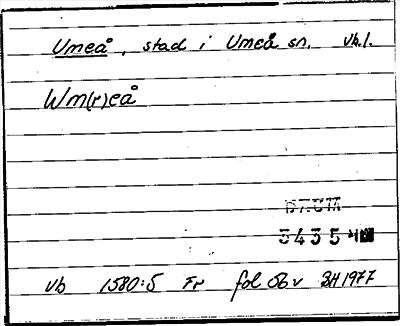 Umeå, stad i Umeå sn. vb.l.
Wm(r)eå
3435
vb 1580:5 Fr fol 56 v BH 1977